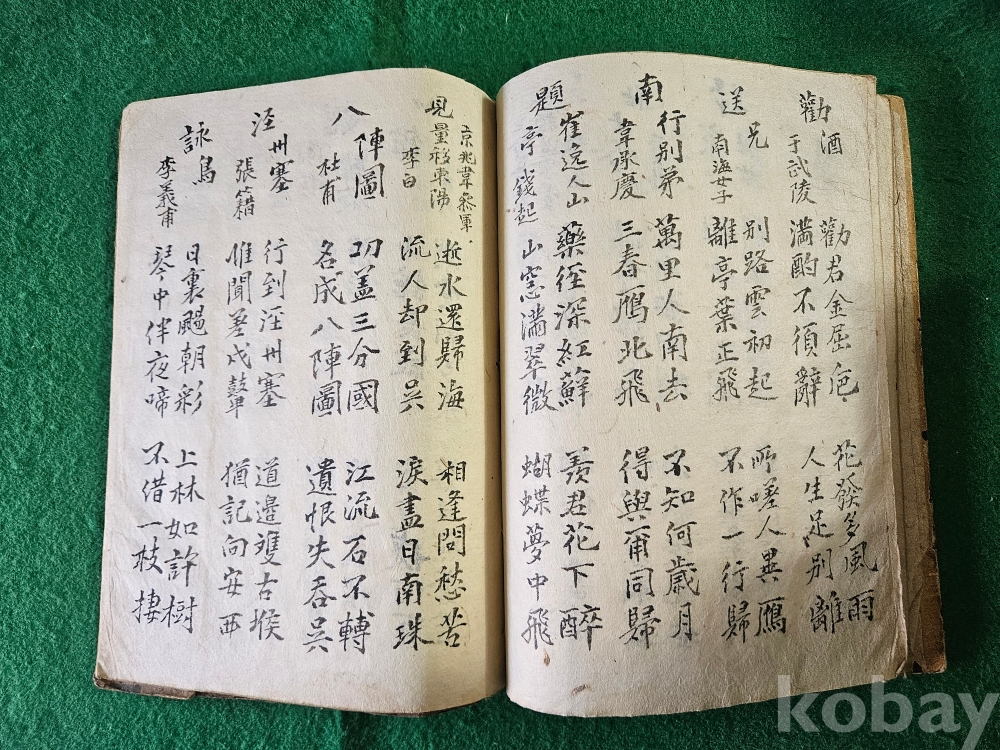 勸酒
于武陵
勸君金屈巵 花發多風雨
滿酌不須辭 人生足別離
送兄
南海女子
別路雲初起 所嗟人異鴈
離亭葉正飛 不作一行歸
南行別弟
韋承慶
萬里人南去 不知何歲月
三春鴈北飛 得與甭同歸
題崔逸人山亭
錢起
藥徑深紅蘇 羨君花下醉
山窓滿翠微 蝴蝶夢中飛
見京兆韋參軍量移東陽
李白
逝水還歸海 相逢問愁苦
流人却到吳 淚盡日南珠
八陣圖
杜甫
功盖三分國 江流石不轉
名成八陣圖 遺恨失吞吳
涇州塞
張籍
行到涇州塞 道邉雙古堠
惟聞羌戍鼙 猶記向安西
詠鳥
李義甫
日裏颺朝彩 上林如許樹
琴中伴夜啼 不借一枝捿
kobay